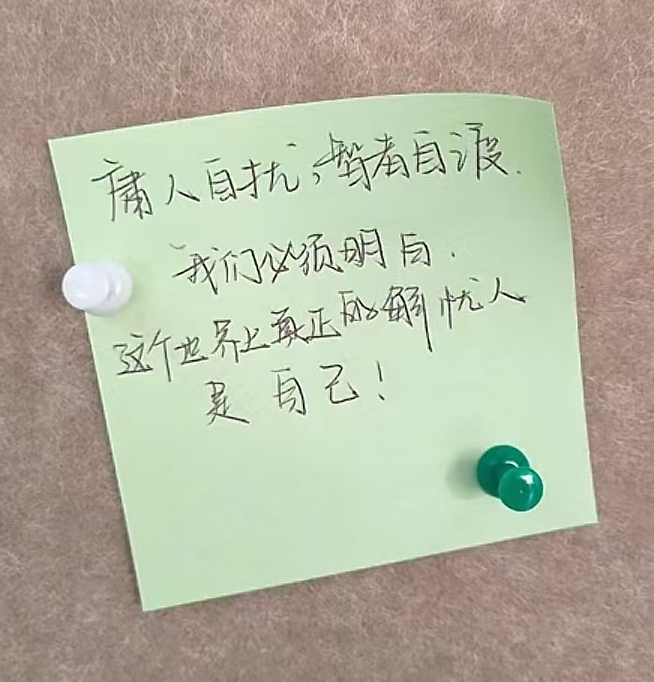 庸人自扰，智者自渡.
我们必须明白.
这个世界上真正的解忧人
是自己！